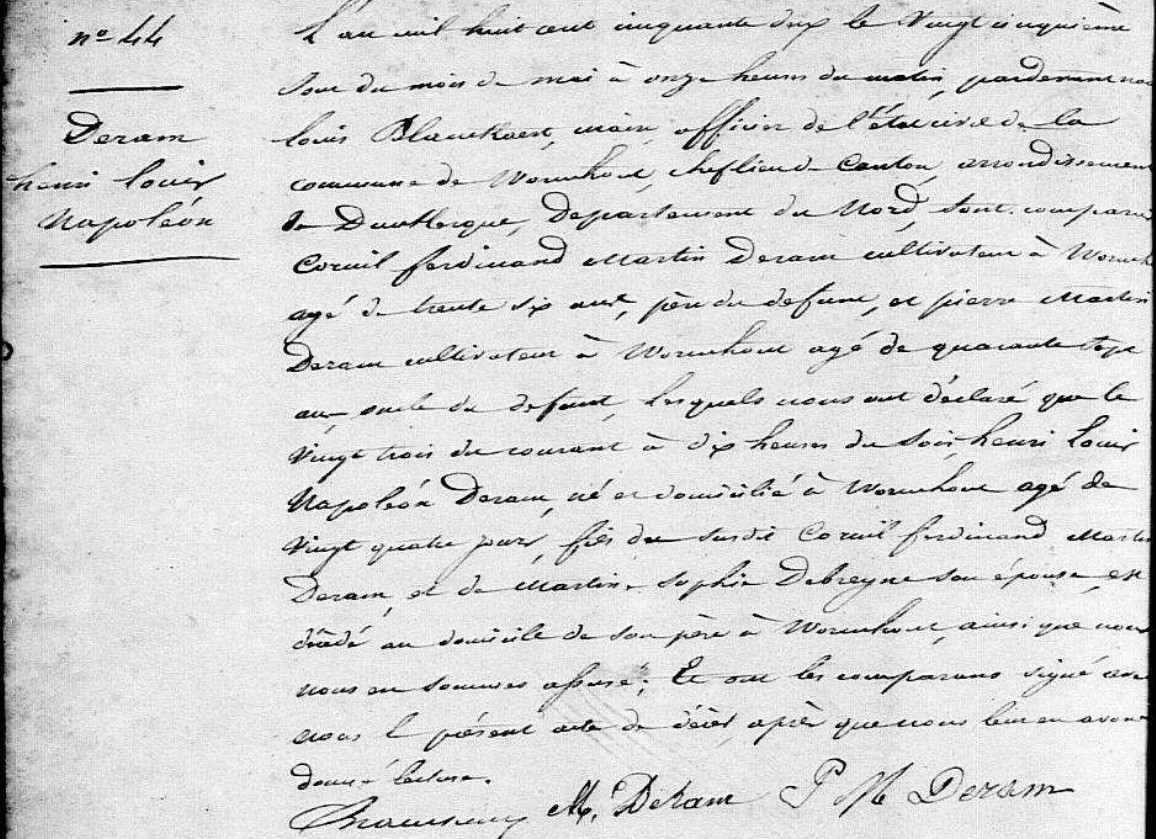 nº 44
Deram
henri louis
Napoléon
L'an mil huit cent cinquante deux le Vingt cinquième
Jour du mois de mai à onze heures du matin, pardevant nous
louis Blanckaert, maire, officier de l'état civil de la
commune de Wormhout, chef lieu de Canton, arrondissement
de Dunkerque, Departement du Nord, sont comparus
Cornil ferdinand Martin Deram cultivateur à Wormh
agé de trente six ans, père du defunt, et pierre Martin
Deram cultivateur à Wormhout agé de quarante sept
ans oncle du defunt, lesquels nous ont déclaré que le
vingt trois du courant à dix heures du soir, henri louis
Napoléon Deram, né et domicilié à Wormhout agé de
Vingt quatre jours, fils du susdit Cornil ferdinand Martin
Deram, et de Martine Sophie Debreyne son épouse, est
décédé au domicile de son père à Wormhout, ainsi que nous
nous en sommes assuré; Et ont les comparans signé avec
nous le présent acte de décès, après que nous leur en avons
donné lecture.
M. Deram P M Deram